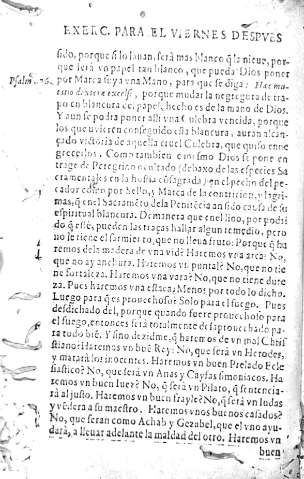 EXERC. PARA EL VIERNES DESPVES
sido, porque si lo lauan, será mas blanco q̃ la nieue, por-
que será vn papel tan blanco, que pueda Dios poner
Psalm. 76.
por Marca suya vna Mano, para que se diga: Hæc mu-
tatio dexteræ excelsi, porque mudar la negregura de tra-
po en blancura de papel, hecho es de la mano de Dios.
Y aun se podra poner alli vna Culebra vencida, porque
los que uvieren conseguido esta blancura, auran alcan-
çado victoria de aquella cruel Culebra, que quiso enne
grecerlos. Como tambien el mismo Dios se pone en
trage de Peregrino oculto (debaxo de las especies Sa
cramentales en la hostia consagrada) en el pecho del pe-
cador como por Sello, y Marca de la contriciõ, y lagri-
mas, q̃ en el Sacramẽto dela Penitẽcia an sido causa de su
espiritual blancura. De manera que en el lino, por podri
do q̃ estè, pueden las traças hallar algun remedio, pero
no le tiene el sarmiento, que no lleua fruto: Porque q̃ ha
remos dela madera de vna vid? Haremos vna arca? No,
que no ay anchura. Haremos vn puntal? No, que no tie
ne fortaleza. Haremos vna vara? No, que no tiene dure
za. Pues haremos vna estaca; Menos por todo lo dicho.
Luego para q̃ es prouechoso? Solo para el fuego. Pues
desdichado del, porque quando fuere prouechoso para
el fuego, entonces será totalmente desaprouechado pa-
ra todo biẽ. Y sino dezidme, q̃ haremos de vn mal Chris
tiano? Haremos vn buẽ Rey? No, que será vn Herodes,
y matará los inocentes. Haremos vn buen Prelado Ecle
siastico? No, que será vn Anas y Cayfas simoniacos. Ha
remos vn buen Iuez? No, q̃ será vn Pilato, q̃ sentencia-
rá al justo. Haremos vn buen frayle? No, q̃ será vn Iudas
y vẽdera a su maestro. Haremos vnos buenos casados?
No, que seran como Achab y Gezabel, que el vno ayu-
dará, a lleuar adelante la maldad del otro. Haremos vn
buen